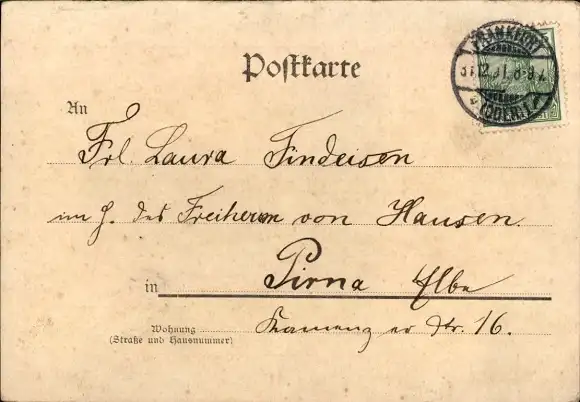 Postkarte
FRANKFURT
(ODER) 1
An
Frl. Laura Findeisen
im H. des Freiherrn von Hausen.
in Pirna Elbe
Wohnung
(Straße und Hausnummer)
Kamenzer Str. 16.